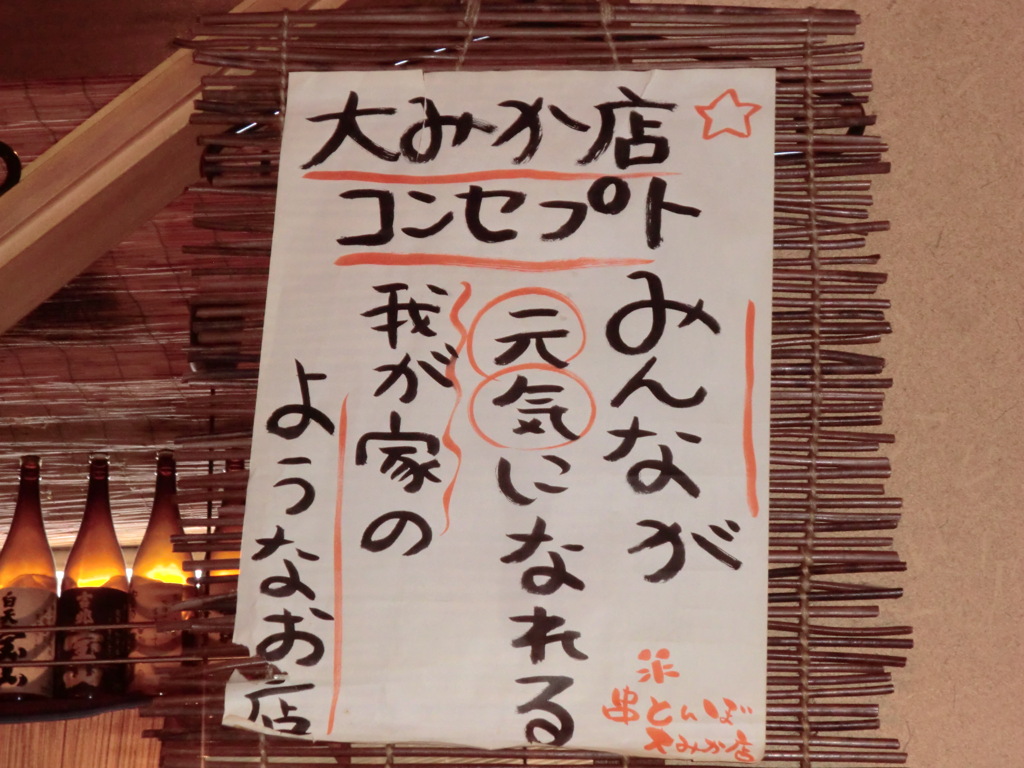 大みか店
コンセプト
みんなが
元気になれる
我が家の
ようなお店
串とんぼ
大みか店